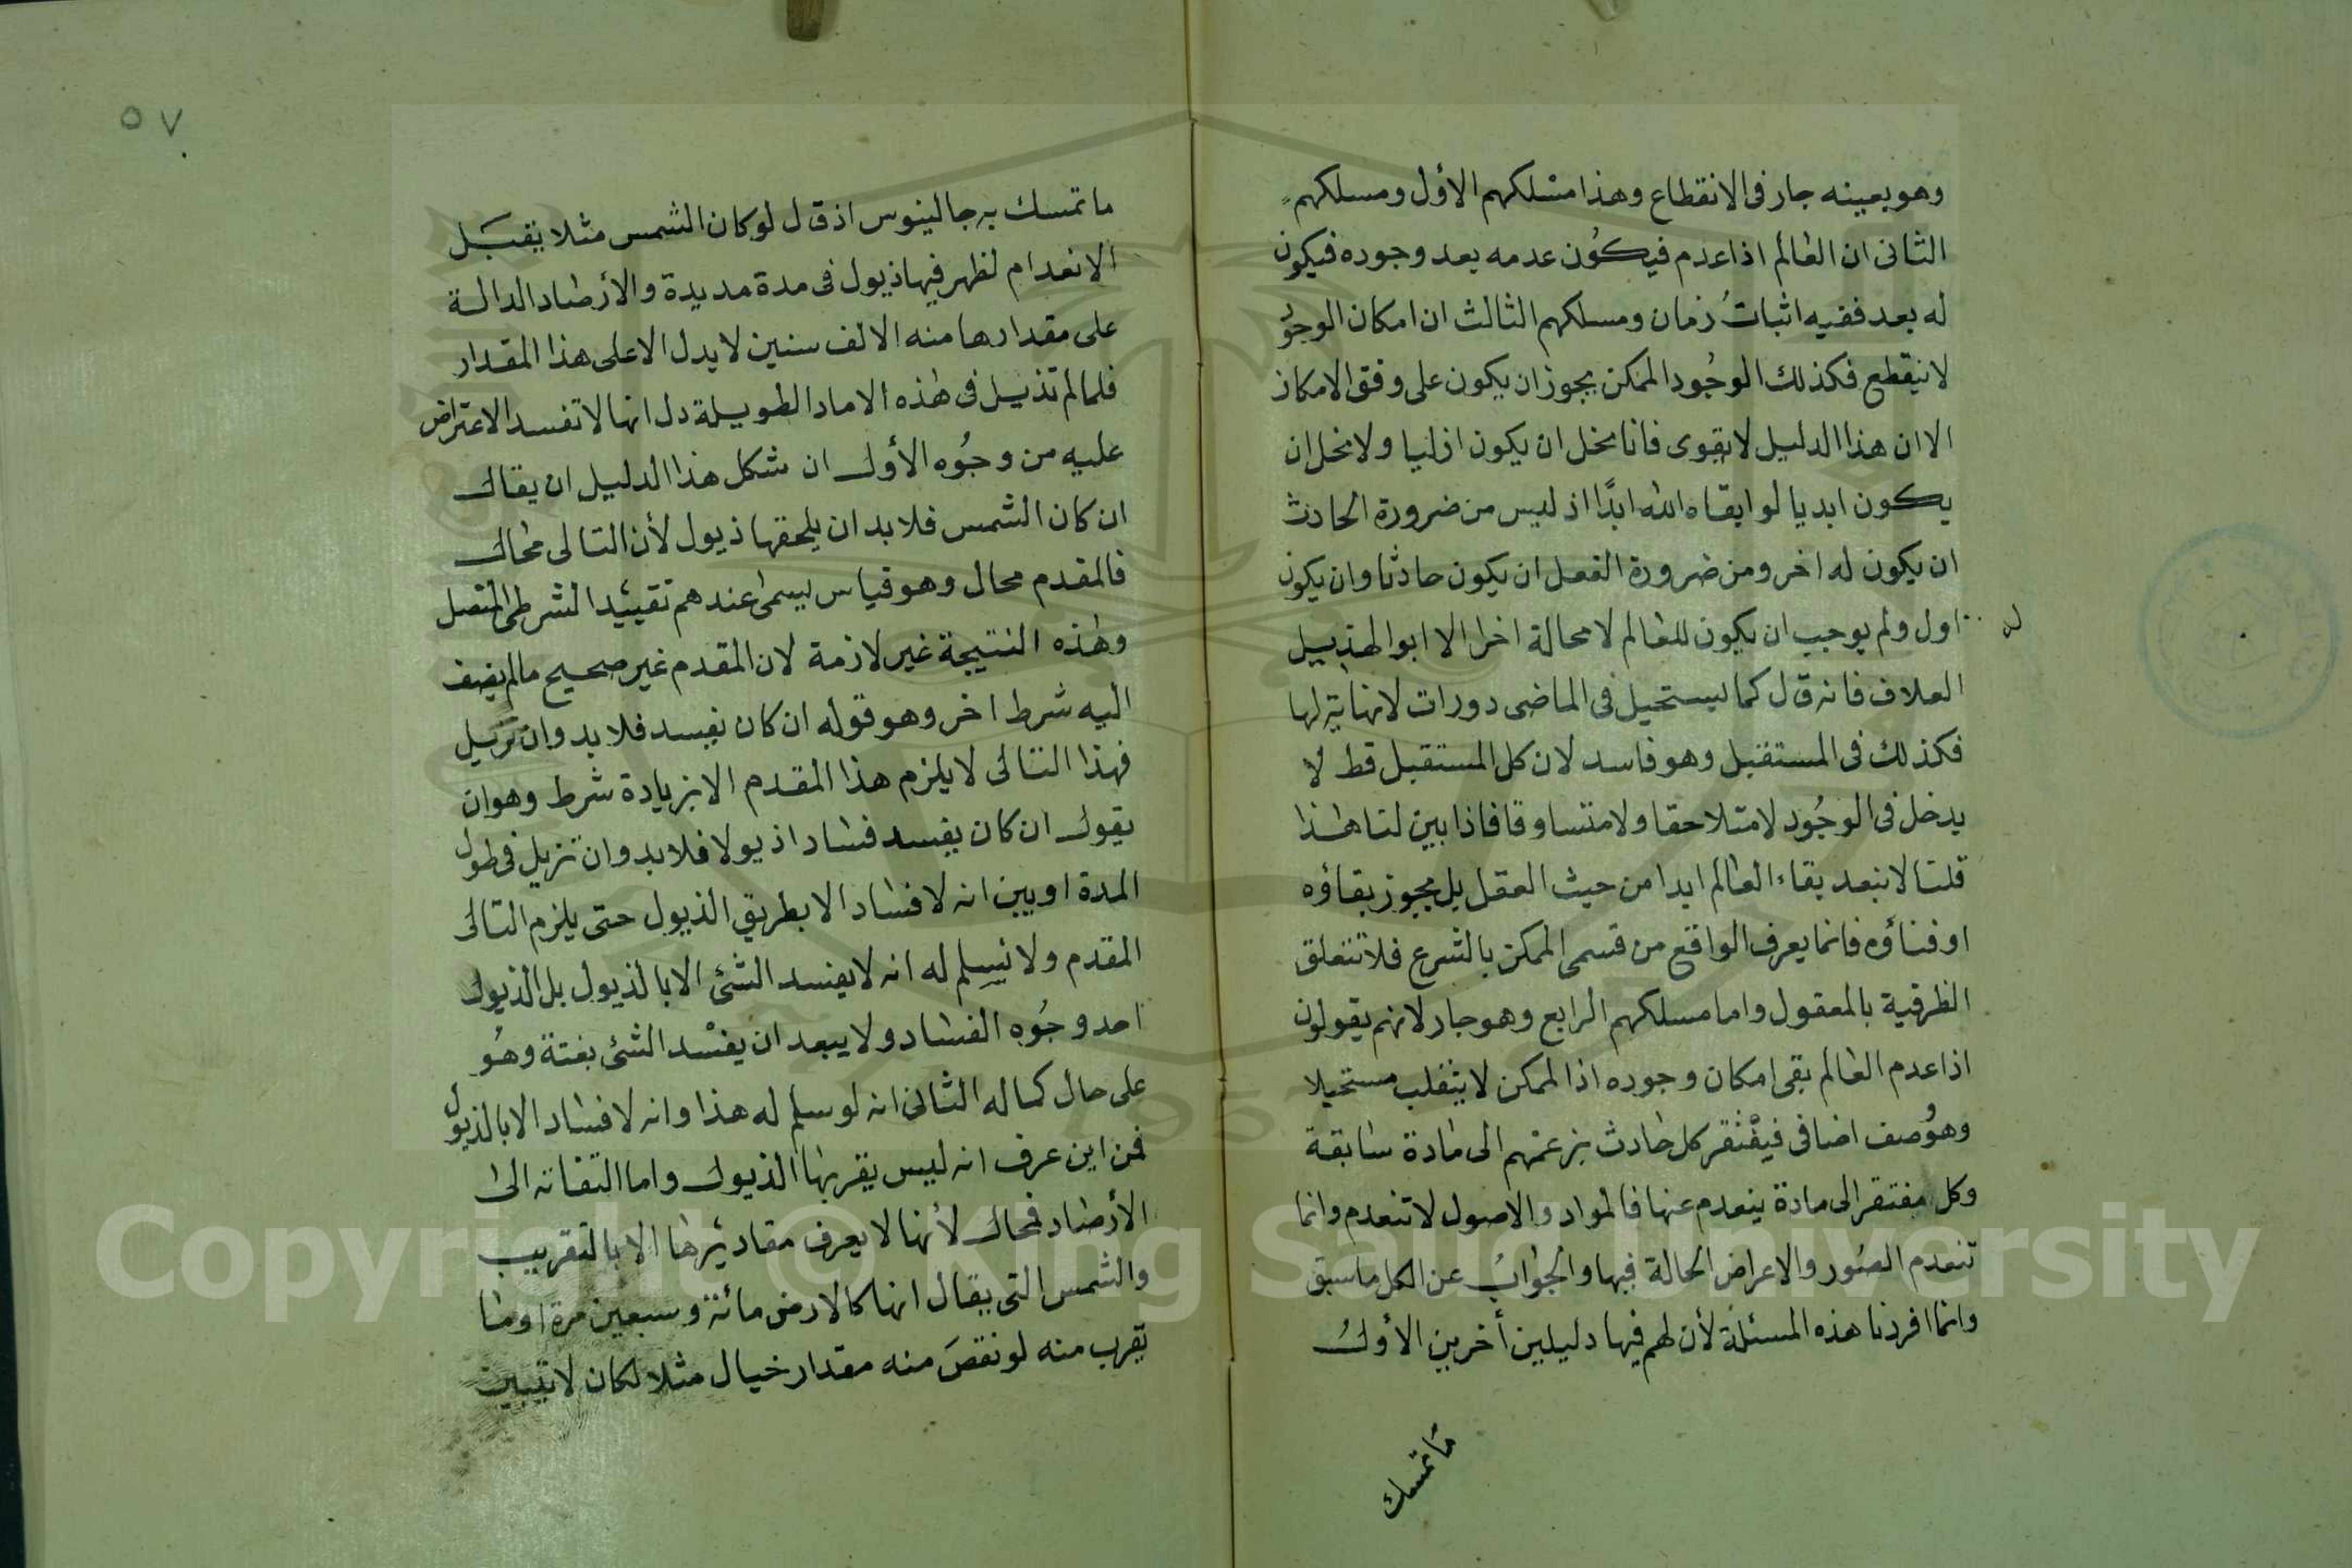 وهو بعينه جار فى الانقطاع وهذا مسلكهم الأول ومسلكهم
الثانى ان العالم اذا عدم فيكون عدمه بعد وجوده فيكون
له بعد ففيه اثبات زمان ومسلكهم الثالث ان امكان الوجود
لا ينقطع فكذلك الوجود الممكن يجوز ان يكون على وفق الامكان
الا ان هذا الدليل لا يقوى فانا نحل ان يكون ازليا ولا نحل ان
يكون ابديا لو ابقاه الله ابدًا اذ ليس من ضرورة الحادث
ان يكون له اخر ومن ضرورة الفعل ان يكون حادثا وان يكون
له
اول ولم يوجب ان يكون للعالم لا محالة اخرا الا ابو الهذييل
العلاف فانه قال كما يستحيل فى الماضى دورات لا نهاية لها
فكذلك فى المستقبل وهو فاسد لان كل المستقبل قط لا
يدخل فى الوجُود لا متلاحقا ولا متساوقا فاذا بين لنا هذا
قلنا لا نبعد بقاء العالم ابدا من حيث العقل بل يجوز بقاؤه
او فناؤه فانما يعرف الواقع من قسمى الممكن بالشرع فلا تتعلق
الظرفية بالمعقول واما مسلكهم الرابع وهو جار لانهم يقولون
اذا عدم العالم بقى امكان وجوده اذ الممكن لا ينقلب مستحيلا
وهو وصف اضافى فيفتقر كل حادث بزعمهم الى مادة سابقة
وكل مفتقر الى مادة ينعدم عنها فالمواد والاصول لا تنعدم وانما
تنعدم الصُور والاعراض الحالة فيها والجواب عن الكل ما سبق
وانما افردنا هذه المسئلة لأن لهم فيها دليلين أخرين الأول
ما تمسك
٥٧
ما تمسك به جالينوس اذ قال لو كان الشمس مثلا يقبَل
الانعدام لظهر فيها ذيول فى مدة مديدة والأرصاد الدالة
على مقدارها منه الالف سنين لا يدل الا على هذا المقدار
فلما لم تذبل فى هذه الاماد الطويلة دل انها لا تفسد الاعتراض
عليه من وجُوه الأول ان شكل هذا الدليل ان يقال
ان كان الشمس فلا بد ان يلحقها ذيول لأن التالى محال
فالمقدم محال وهو قياس يسمى عندهم تقييد الشرطى المتصل
وهذه النتيجة غير لازمة لان المقدم غير صحيح مالم يضف
اليه شرط اخر وهو قوله ان كان يفسد فلا بد وان تزيل
فهذا التالى لا يلزم هذا المقدم الا بزيادة شرط وهو ان
يقول ان كان يفسد فسادا ذيولا فلا بد وان تزيل فى طول
المدة او يبين انه لا فساد الا بطريق الذيول حتى يلزم التالى
المقدم ولا نسلم له انه لا يفسد الشئ الا بالذيول بل الذيول
احد وجُوه الفساد ولا يبعد ان يفسد الشئ بغتة وهُو
على حال كماله الثانى انه لو سلم له هذا وانه لا فساد الا بالذيول
فمن اين عرف انه ليس يقربها الذيول واما التفاته الى
الأرصاد فمحال لأنها لا يعرف مقاديرها الا بالتقريب
والشمس التى يقال انها كالارض مائة وسبعين مرة او ما
يقرب منه لو نقصَ منه مقدار خيال مثلا لكان لا يتبين
Copyright © King Saud University